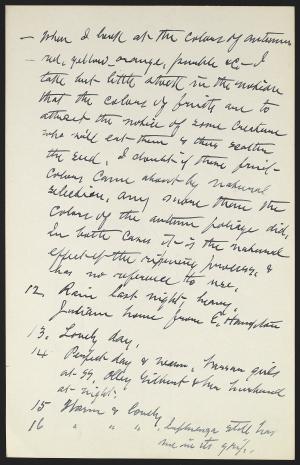 — When I look at the colors of autumn
— red, yellow, orange, purple &c — I
take but little stock in the notion
that the colors of fruits are to
attract the notice of some creature
who will eat them & thus scatter
the seed, I doubt if these fruit-
colors came about by natural
selection, any more than the
colors of the autumn foliage did,
In both cases it is the natural
effect of the ripening process, &
has no reference to use,
12 Rain last night, heavy,
Julian home from E, Hampton
13, Lovely day,
14 Perfect day & warm, Vassar girls
at SS, Olley Gilbert & her husband
at night.
15 Warm & lovely
16 " " " , Influenza still has
me in its grip.